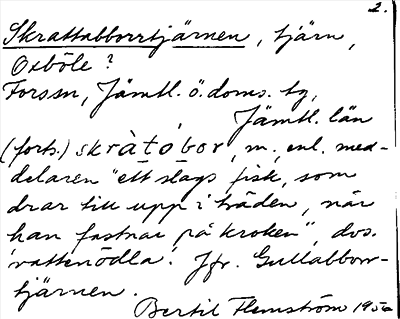 2.
Skrattabborrtjärnen, tjärn,
Oxböle?
Forssn, Jämtl. ö. doms. tg,
Jämtl. län
(forts.) skràtóbor, m, enl. med-
delaren "ett slags fisk, som
drar till upp i tråden, när
han fastnar på kroken", dvs.
'vattenödla'. Jfr. Gullabborr-
tjärnen.
Bertil Flemström 1956